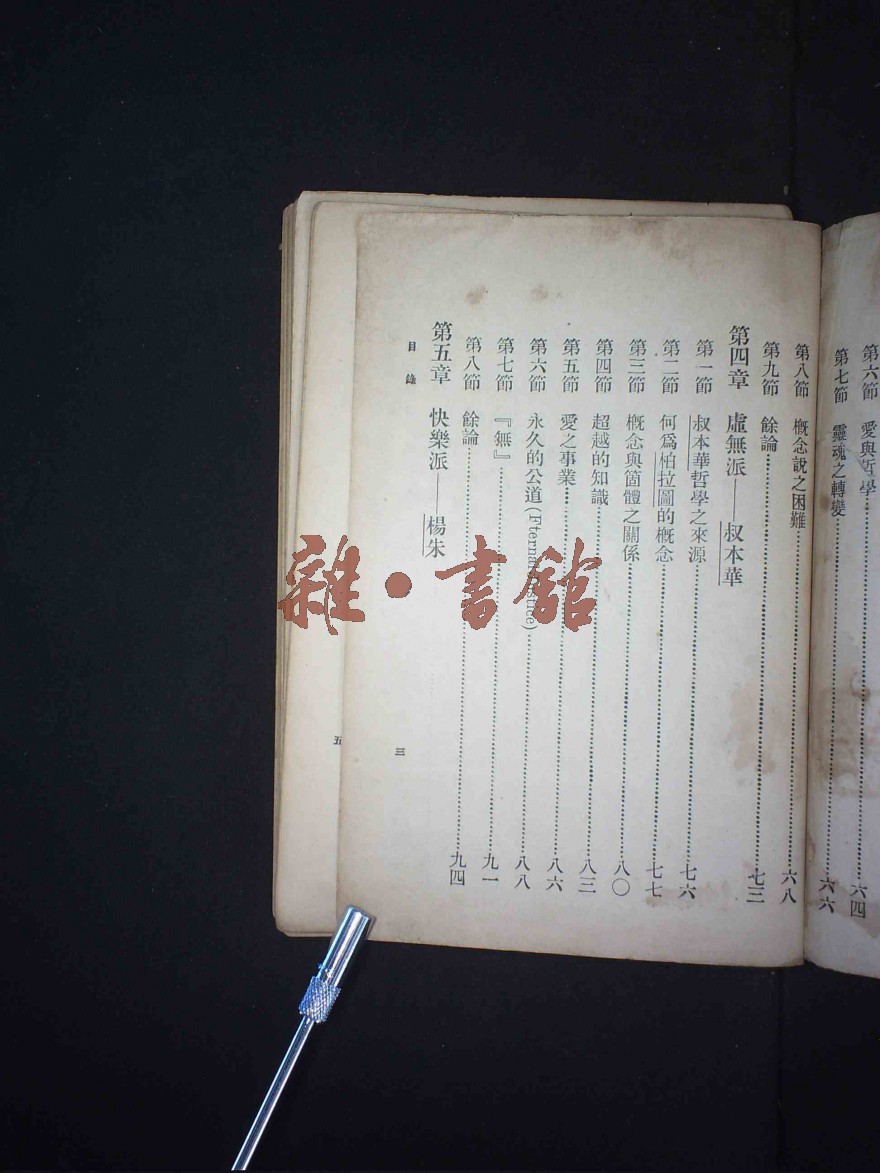 第六節　愛與哲學……六四
第七節　靈魂之轉變……六六
第八節　概念說之困難……六八
第九節　餘論……七三
第四章　虛無派——叔本華
第一節　叔本華哲學之來源……七六
第二節　何爲柏拉圖的概念……七七
第三節　概念與箇體之關係……八〇
第四節　超越的知識……八三
第五節　愛之事業……八六
第六節　永久的公道……八八
第七節　『無』……九一
第八節　餘論……九四
第五章　快樂派——楊朱
目錄　三
五
雜·書館